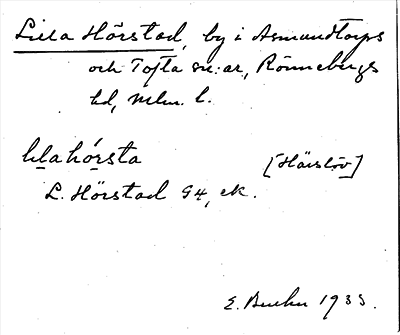 Lilla Hörstad, by i Asmundtorps
och Tofta sn:ar, Rönnebergs
hd, Mlm. l.
lılahǫ́rsta [Härslöv]
L. Hörstad G4, ek.
E. Bucht 1933.